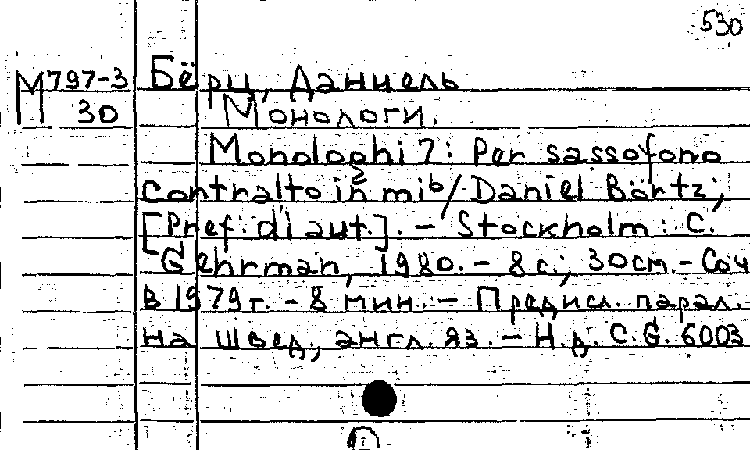 530
М 797-3 Бёрц, Даниель
30 Монологи.
Monologhi 7: Per sassofono
contralto in mib / Daniel Börtz;
[Pref. di aut.]. - Stockholm: C.
Gehrman, 1980. - 8 с.; 30 cm. - Соч
в 1979 г. - 8 мин. - Предисл. парал.
на швед., англ. яз. - Н.д. C.G. 6003